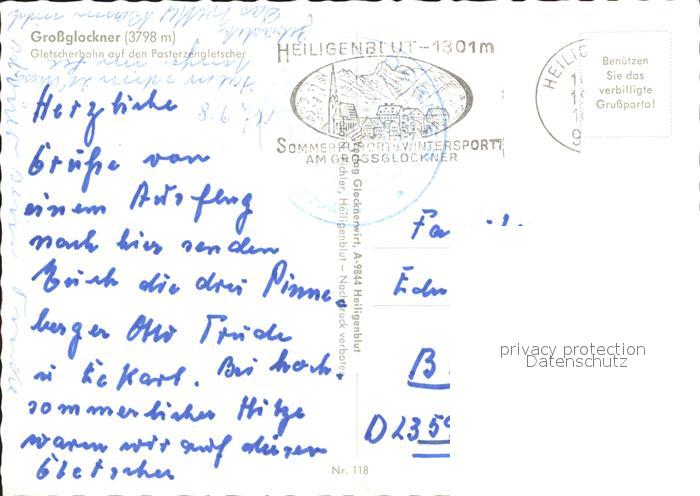 Großglockner (3798 m)
Gletscherbahn auf den Pasterzengletscher
HEILIGENBLUT – 1301 m
SOMMERKURORT u WINTERSPORT
AM GROSSGLOCKNER
HEILIG
Benützen
Sie das
verbilligte
Grußporto!
Herzliche
Grüße von
einem Ausflug
nach hier senden
Euch die drei Pinne-
berger Otto Trude
u Eckart. Bei hoch-
sommerlicher Hitze
waren wir auf diesem
Gletscher
Verlag Glocknerwirt, A-9844 Heiligenblut
Heiligenblut – Nachdruck verboten
Fa
B
D 2359
privacy protection
Datenschutz
Nr. 118